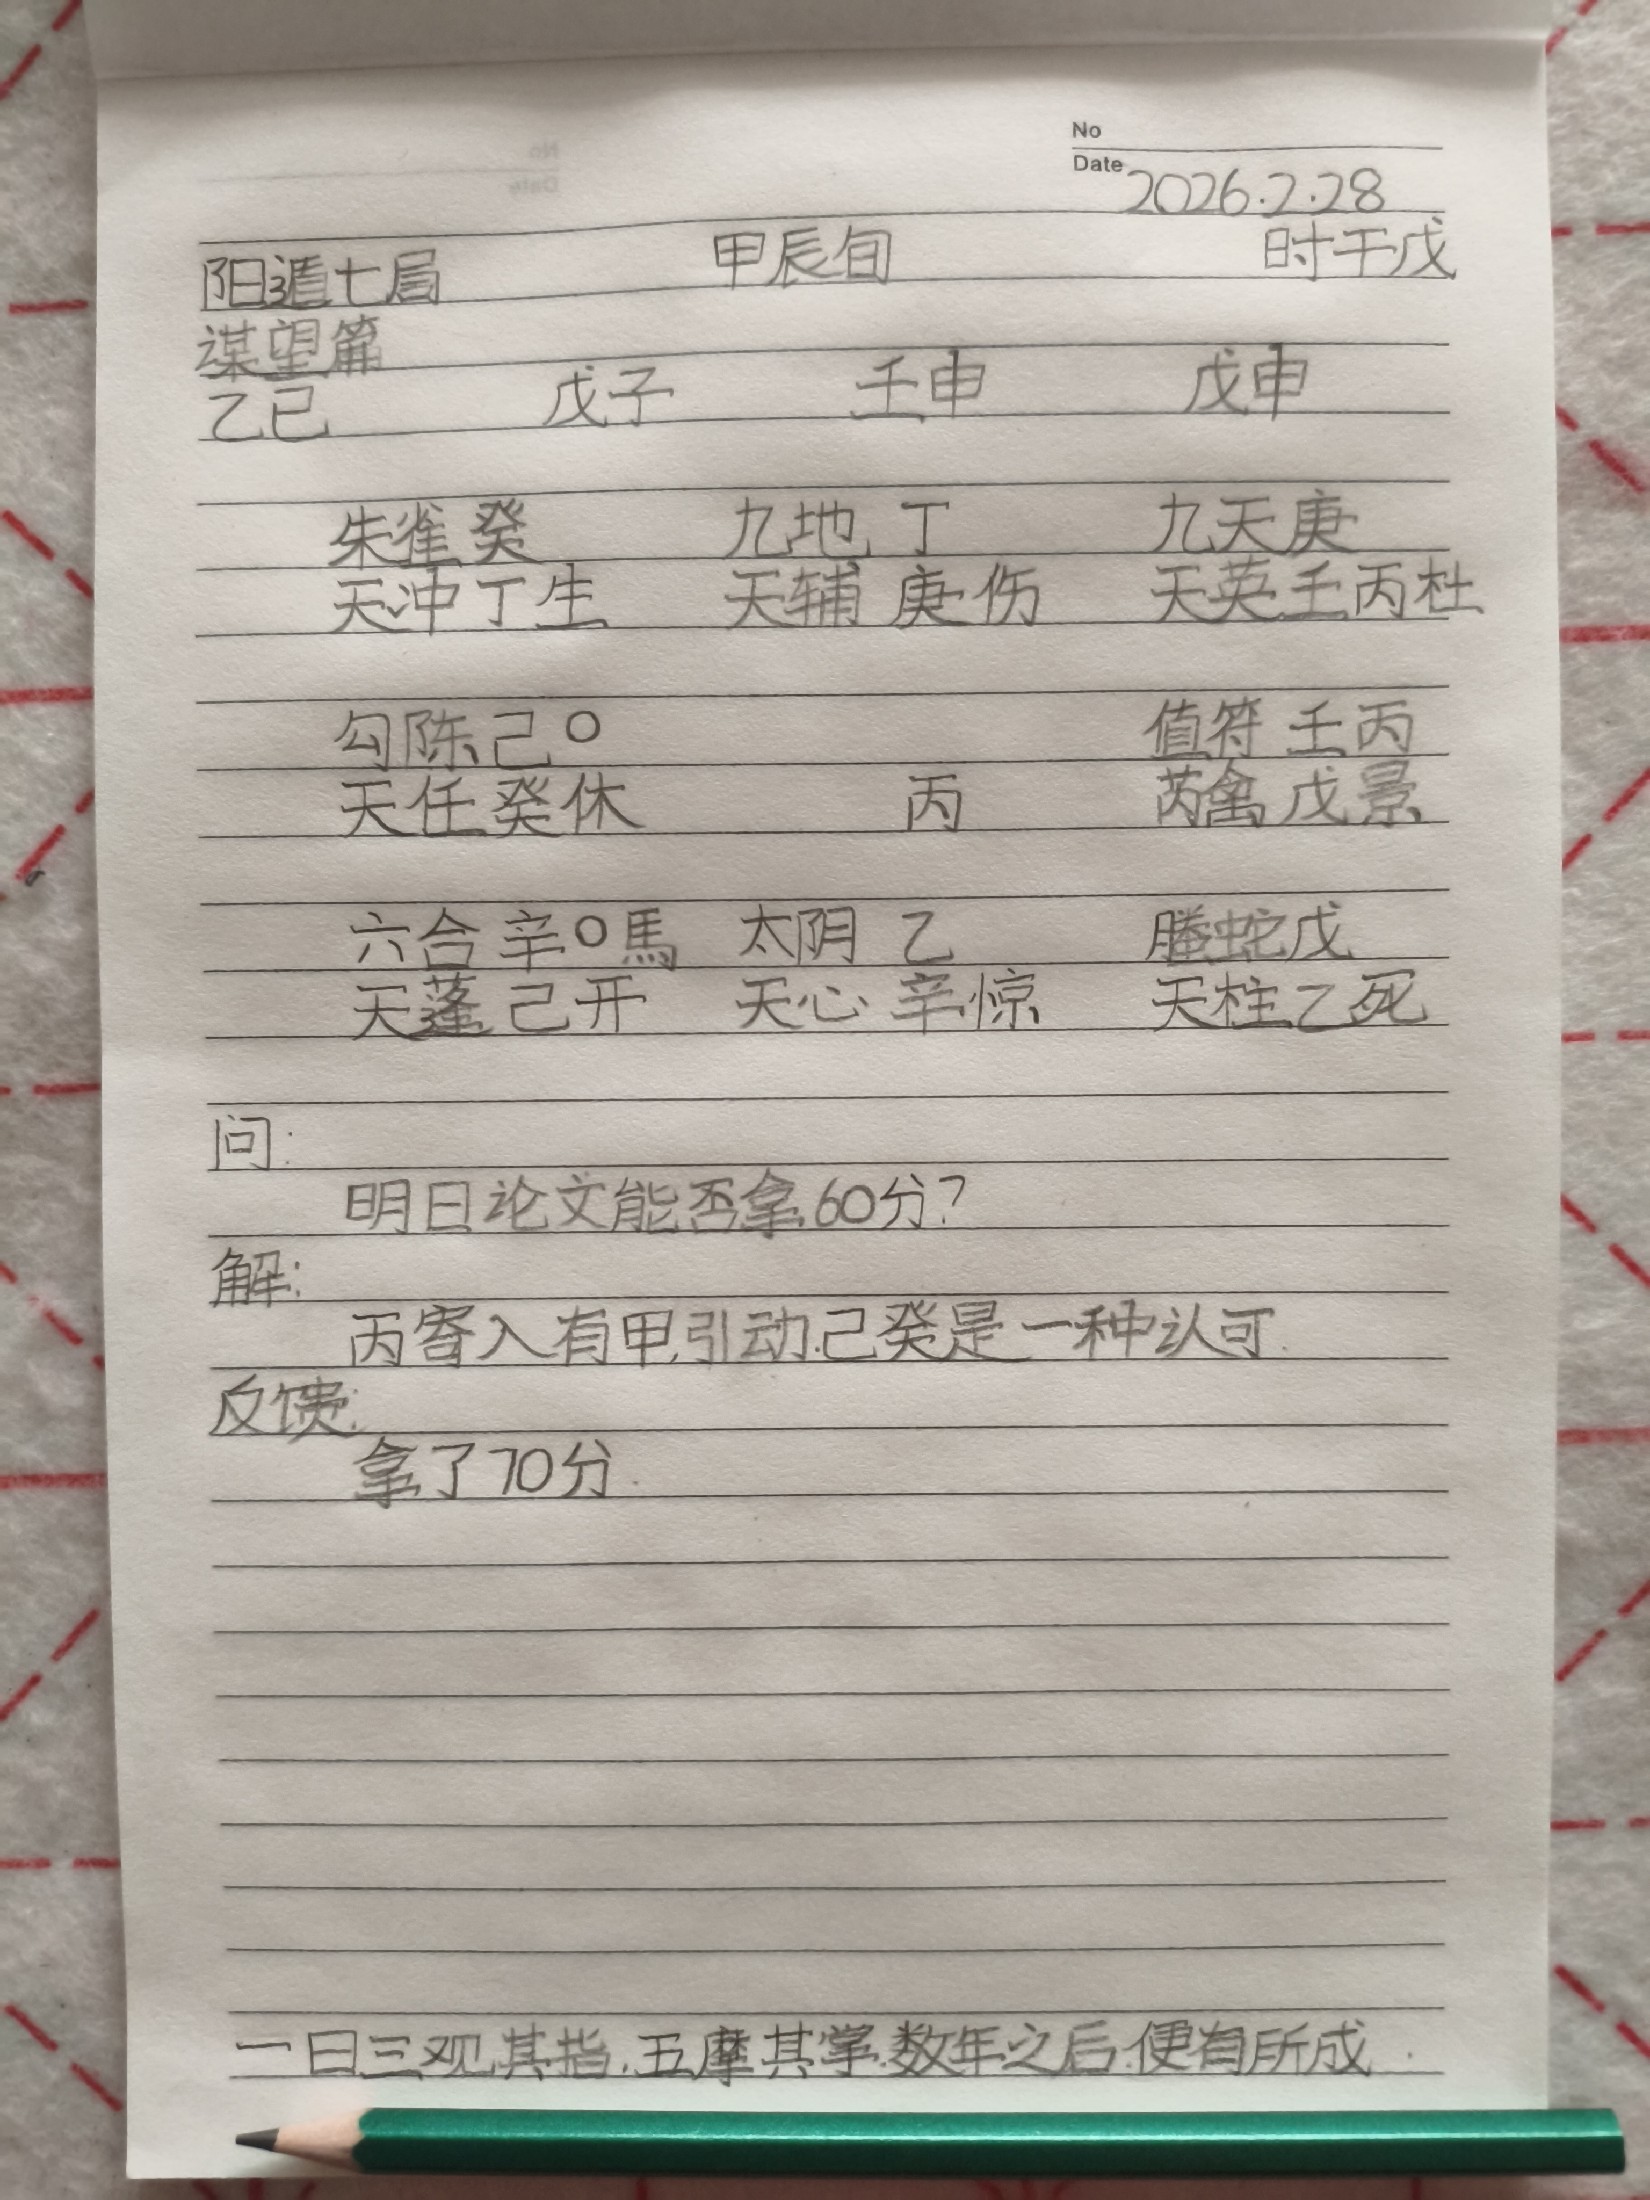 No
Date 2026.2.28
阳遁七局 甲辰旬 时干戊
谋望篇
乙巳 戊子 壬申 戊申
朱雀 癸 九地 丁 九天 庚
天冲 丁 生 天辅 庚 伤 天英 壬丙 杜
勾陈 己 O 值符 壬丙
天任 癸 休 丙 芮禽 戊 景
六合 辛 O 馬 太阴 乙 螣蛇 戊
天蓬 己 开 天心 辛 惊 天柱 乙 死
问:
明日论文能否拿60分?
解:
丙寄入有甲,引动.己癸是一种认可.
反馈:
拿了70分.
一日三观其指.五摩其掌.数年之后.便有所成.